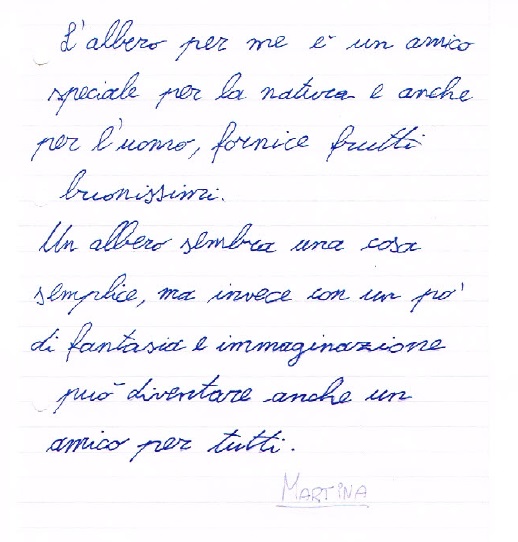 L'albero per me è un amico
speciale per la natura e anche
per l'uomo, fornice frutti
buonissimi.
Un albero sembra una cosa
semplice, ma invece con un po'
di fantasia e immaginazione
può diventare anche un
amico per tutti.
MARTINA